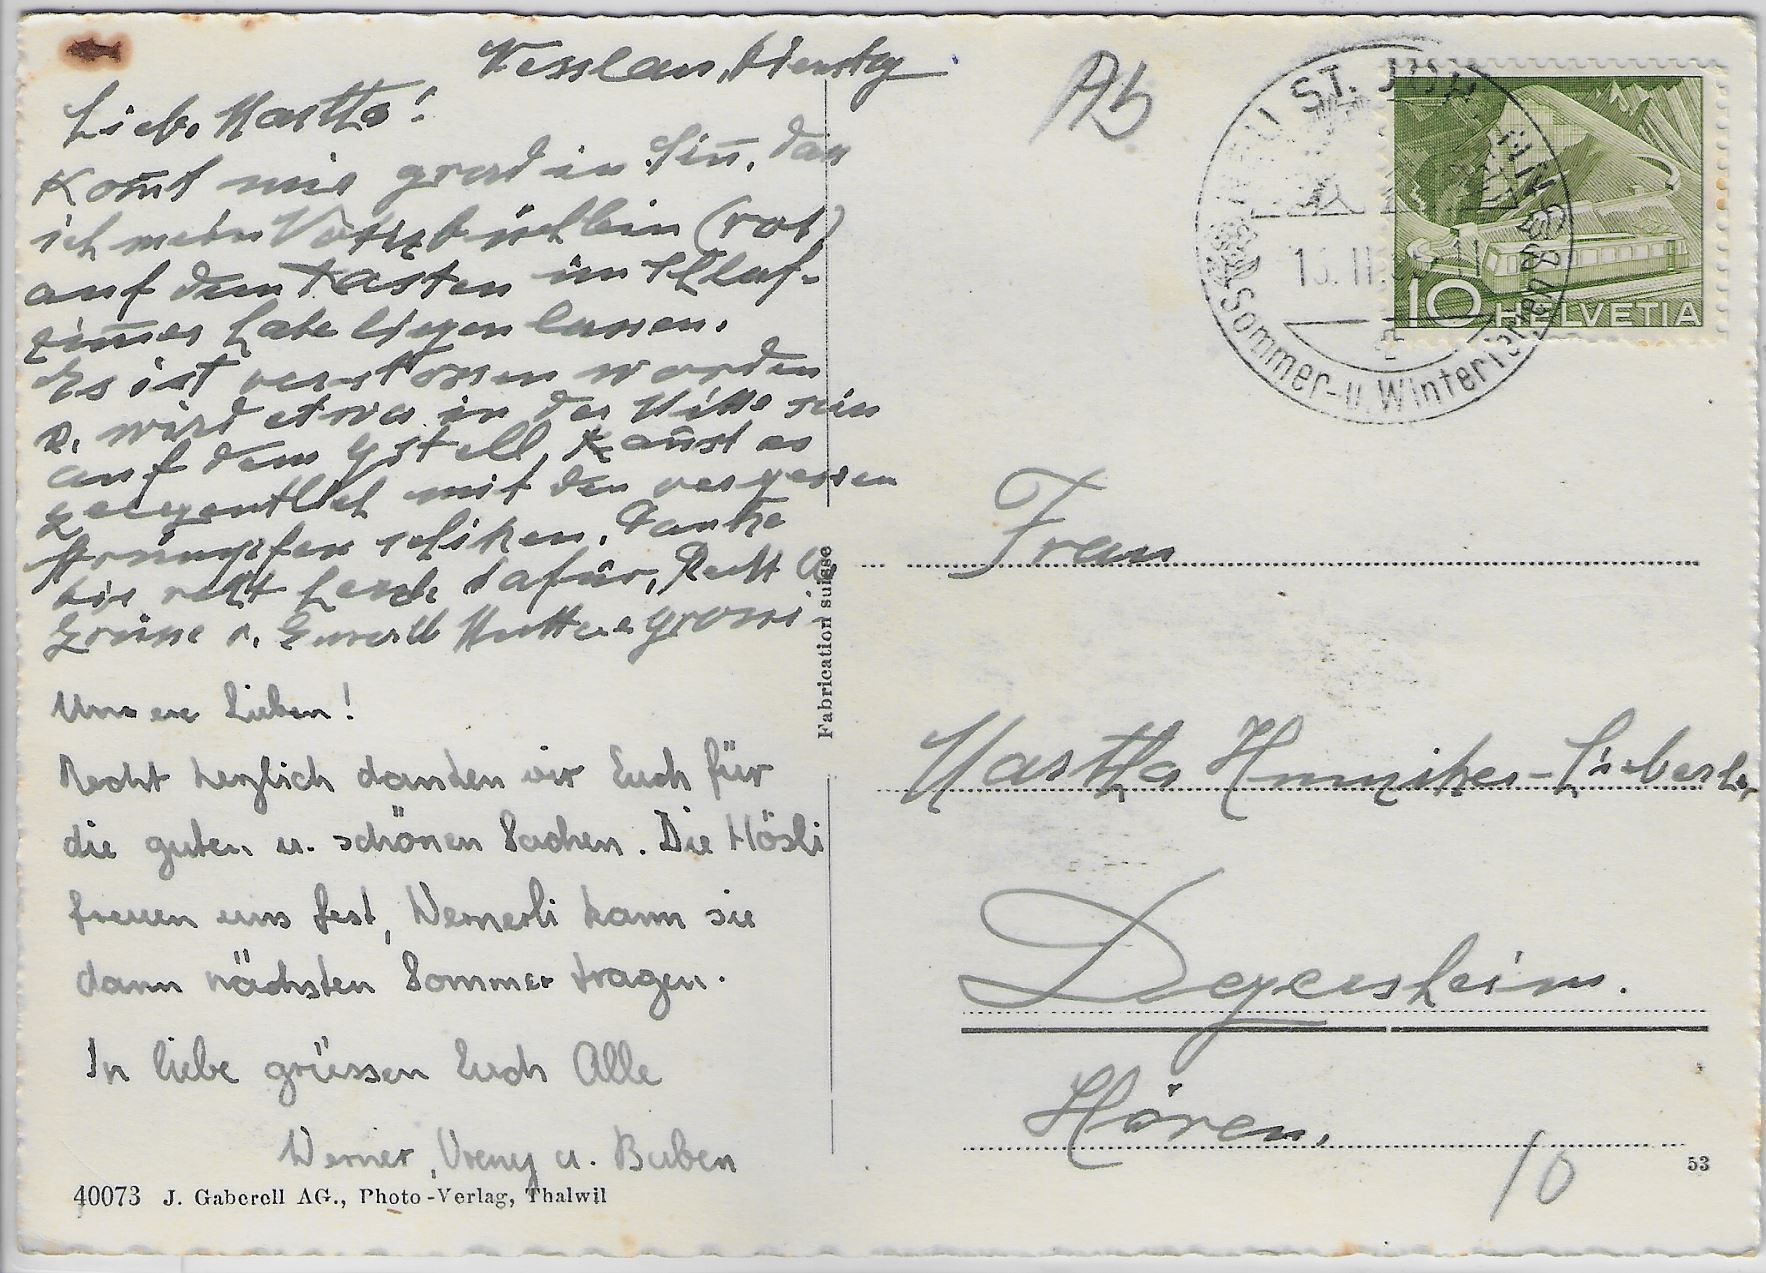 Nesslau, Dienstag
Liebe Martha!
Komt mir grad in Sin̄, das
ich mein Notizbüchlein (rot)
auf dem Kasten im Schlaf-
zim̄er habe liegen lassen.
Es ist verstossen worden
u. wird etwa in der Mitte sein
auf dem Gstell, Kan̄st es
gelegentlich mit den vergessen
Strümpfen schiken. Danke
dir recht herzli dafür, Recht
Grüsse v. Mutter grossi
Unsere Lieben!
Recht herzlich danken wir Euch für
die guten u. schönen Sachen. Die Hösli
freuen uns fest, Wernerli kann sie
dann nächsten Sommer tragen.
In liebe grüssen Euch Alle
Werner, Vreny u. Buben
40073 J. Gaberell AG., Photo-Verlag, Thalwil
Fabrication suisse
Ab
NEU ST. JOHANN
13. II. 11
Sommer- u. Winterferien
10 HELVETIA
Frau
Martha Hunziker-Lieberherr
Degersheim.
Hören.
53
10